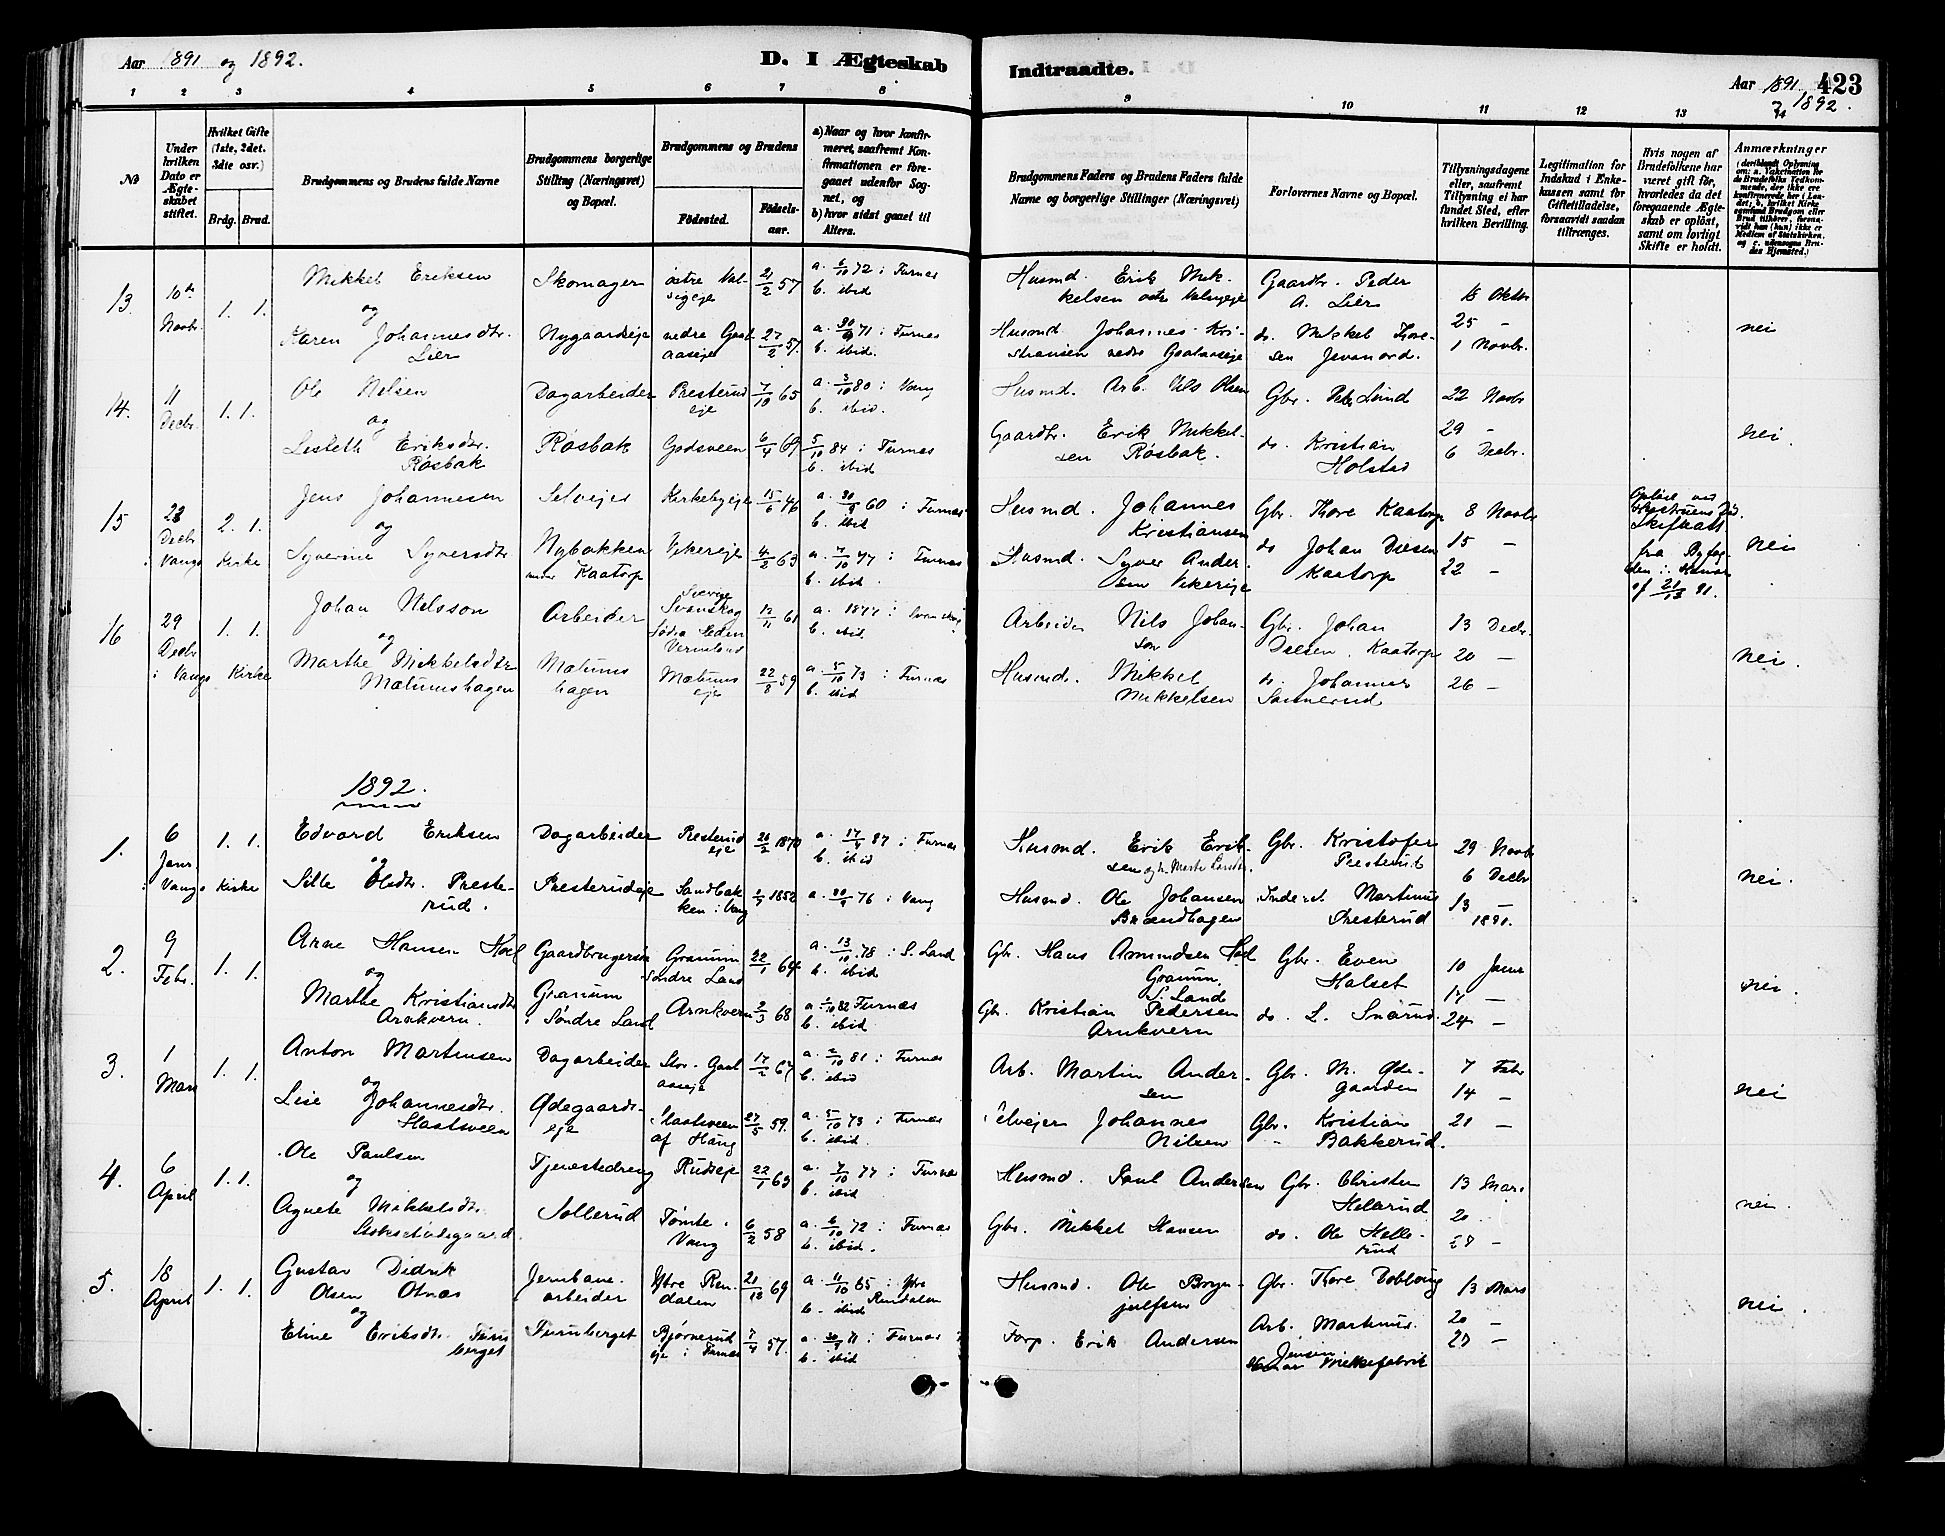 Aar 1891 og 1892.
D. I Ægteskab
Indtraadte.
Aar 1891 og 1892. 423
1 2 3 4 5 6 7 8 9 10 11 12 13 14
№
Under hvilken Dato er Ægteskabet stiftet.
Hvilket Gifte (1ste, 2det. 3die osv.)
Brdg. Brud.
Brudgommens og Brudens fulde Navne
Brudgommens borgerlige Stilling (Næringsvei) og Bopæl.
Brudgommens og Brudens
Fødested.
Fødselsaar.
a) Naar og hvor konfirmeret, saafremt Konfirmationen er foregaaet udenfor Sognet, og
b) hvor sidst gaaet til Alters.
Brudgommens Faders og Brudens Faders fulde Navne og borgerlige Stillinger (Næringsvei)
Forlovernes Navne og Bopæl.
Tillysningsdagene eller, saafremt Tillysning ei har fundet Sted, efter hvilken Bevilling.
Legitimation for Indskud i Enkekassen samt for Giftetilladelse, forsaavidt saadan tiltrænges.
Hvis nogen af Brudefolkene har været gift før, hvorledes da det foregaaende Ægteskab er opløst, samt om lovligt Skifte er holdt.
Anmærkninger
13. 10de Novbr. 1. 1.
Mikkel Eriksen
og
Karen Johannesdtr. Lier
Skomager
Nygaardseje
21/2 57
27/2 57.
a. 6/10 72 i Furnæs
b. ibid
a. 30/9 71 i Furnæs
b. ibid.
Husmd. Erik Mikkelsen
Husmd. Johannes Kristiansen
Gaardbr. Peder A. Lier
do. Mikkel Thoresen Jevanord.
18 Oktbr
25 –
1 Novbr.
nei
14. 11 Decbr. 1. 1.
Ole Nilsen
og
Lisbeth Eriksdtr. Røsbak
Dagarbeider
Røsbak
Presterudeje
Godsveen
7/10 65
6/4 69
a. 3/10 80 i Vang
b. ibid.
5/10 84 i Furnæs
b. ibid
Husmd. Arb. Nils Olsen
Gaardbr. Erik Mikkelsen Røsbak.
Gbr. Peder Lund
do. Kristian Holstad
22 Novbr
29 –
6 Decbr.
nei.
15 23 Decbr i Vangs Kirke 2. 1.
Jens Johannesen
og
Syverine Syversdtr
Selveier
Nybakken under Kaatorp
Kirkebyeje
Vikereje
15/6 46
4/2 63
a. 30/9 60 i Furnæs
b. ibid
a. 7/10 77 i Furnæs
b. ibid.
Husmd. Johannes Kristiansen
Husmd. Syver Andersen Vikereje
Gbr. Thore Kaatorp
do Johan Deesen Kaatorp
8 Novbr
15 –
22 –
Opløst ved Hustruens Død.
Skifteatt. fra Byfogden i Hamar af 21/12 91.
nei
16 29 Decbr i Vangs Kirke 1. 1.
Johan Nilsson
og
Marthe Mikkelsdtr Mælumshagen
Arbeider
Mælumshagen
Sverige
Svanskog
Södra Eden
Vermland
Mælumseje
12/11 61
22/8 59
a. 1877 i Svanskog
b. ibid.
a. 5/10 73 i Furnæs
b. ibid
Arbeider Nils Johanson
Husmd. Mikkel Mikkelsen
Gbr. Johan Deesen. Kaatorp
do. Johannes Sannerud
13 Decbr.
20 –
26 –
nei.
1892.
1. 6 Janr. i Vangs Kirke 1. 1.
Edvard Eriksen
og
Sille Olsdtr. Presterud.
Dagarbeider
Presterudeje
Presterudeje
Sandbakken i Vang
26/2 1870
a. 17/4 87 i Furnæs
b. ibid
a. 30/9 76 i Vang
Husmd. Erik Eriksen
Husmd. Ole Johansen Brændhagen
Gbr. Kristofer Presterud
Inderst Martinus Presterud
29 Novbr
6 Decbr
13 –
1891.
nei.
2. 9 Febr. 1. 1.
Arne Hansen Hoel
og
Marthe Kristiansdtr Arnkvern.
Gaardbrugersøn
Granum i Søndre Land
Granum Søndre Land
Arnkvern
22/1 64
2/3 68
a. 13/10 78 i S. Land
b. ibid
a 1/10 82 Furnæs
b. ibid.
Gbr. Hans Amundsen Hoel Granum, S. Land
Gbr. Kristian Pedersen Arnkvern
Gbr. Even Halset
do. L. Snarud.
10 Janr
17 –
24 –
nei.
3. 1 Mars 1. 1.
Anton Martinsen
og
Lise Johannesdtr. Slaatsveen
Dagarbeider
Ødegaardseje
Slaatsveen af Haug
17/2 67
27/5 59.
a. 2/10 81 i Furnæs
b. ibid
a. 5/10 73 i Furnæs
b. ibid.
Arb. Martin Andersen
Selveier Johannes Nilsen
Gbr. M. Ødegaarden
Gbr. Kristian Bakkerud.
7 Febr
14 –
21 –
nei
4. 6 April 1. 1.
Ole Paulsen
og
Agnete Mikkelsdtr.
Tjenestedreng
Sollerud
Rudseje
Tømte. Vang
22/1 63
6/2 58
a. 7/10 77 i Furnæs
b. ibid
a. 6/10 72 i Furnæs
b. ibid.
Husmd. Paul Andersen
Gbr. Mikkel Hansen
Gbr. Christen Hellerud
do. Ole Hellerud
13 Mars
20 –
27 –
nei.
5. 18 April 1. 1.
Gustav Didrik Olsen Otnæs
og
Eline Eriksdtr. Furuberget
Jernbanearbeider
Furuberget
Ytre Rendalen
Bjørnerudeje i Furnæs
21/12 69
7/4 57.
a. 11/10 85 i Ytre Rendalen
b. ibid
a. 30/9 71 i Furnæs
b. ibid
Husmd. Ole Brynjulfsen
Torp. Erik Andersen
Gbr. Thore Dobloug
Arb. Martinus Jensen Hamar Melkefabrik
13 Mars
20 –
27 –
nei.